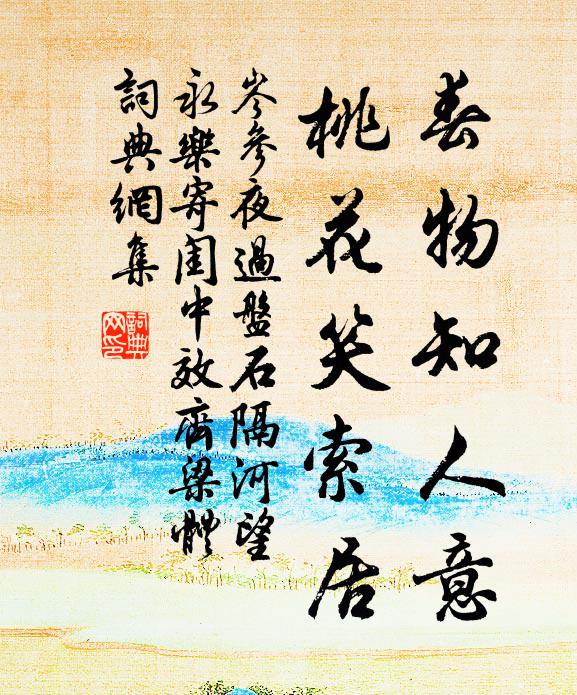 春物知人意
桃花笑索居
岑參夜過盤石隔河望
永樂寄閨中效齊梁體
詞典網集
詞典
网印